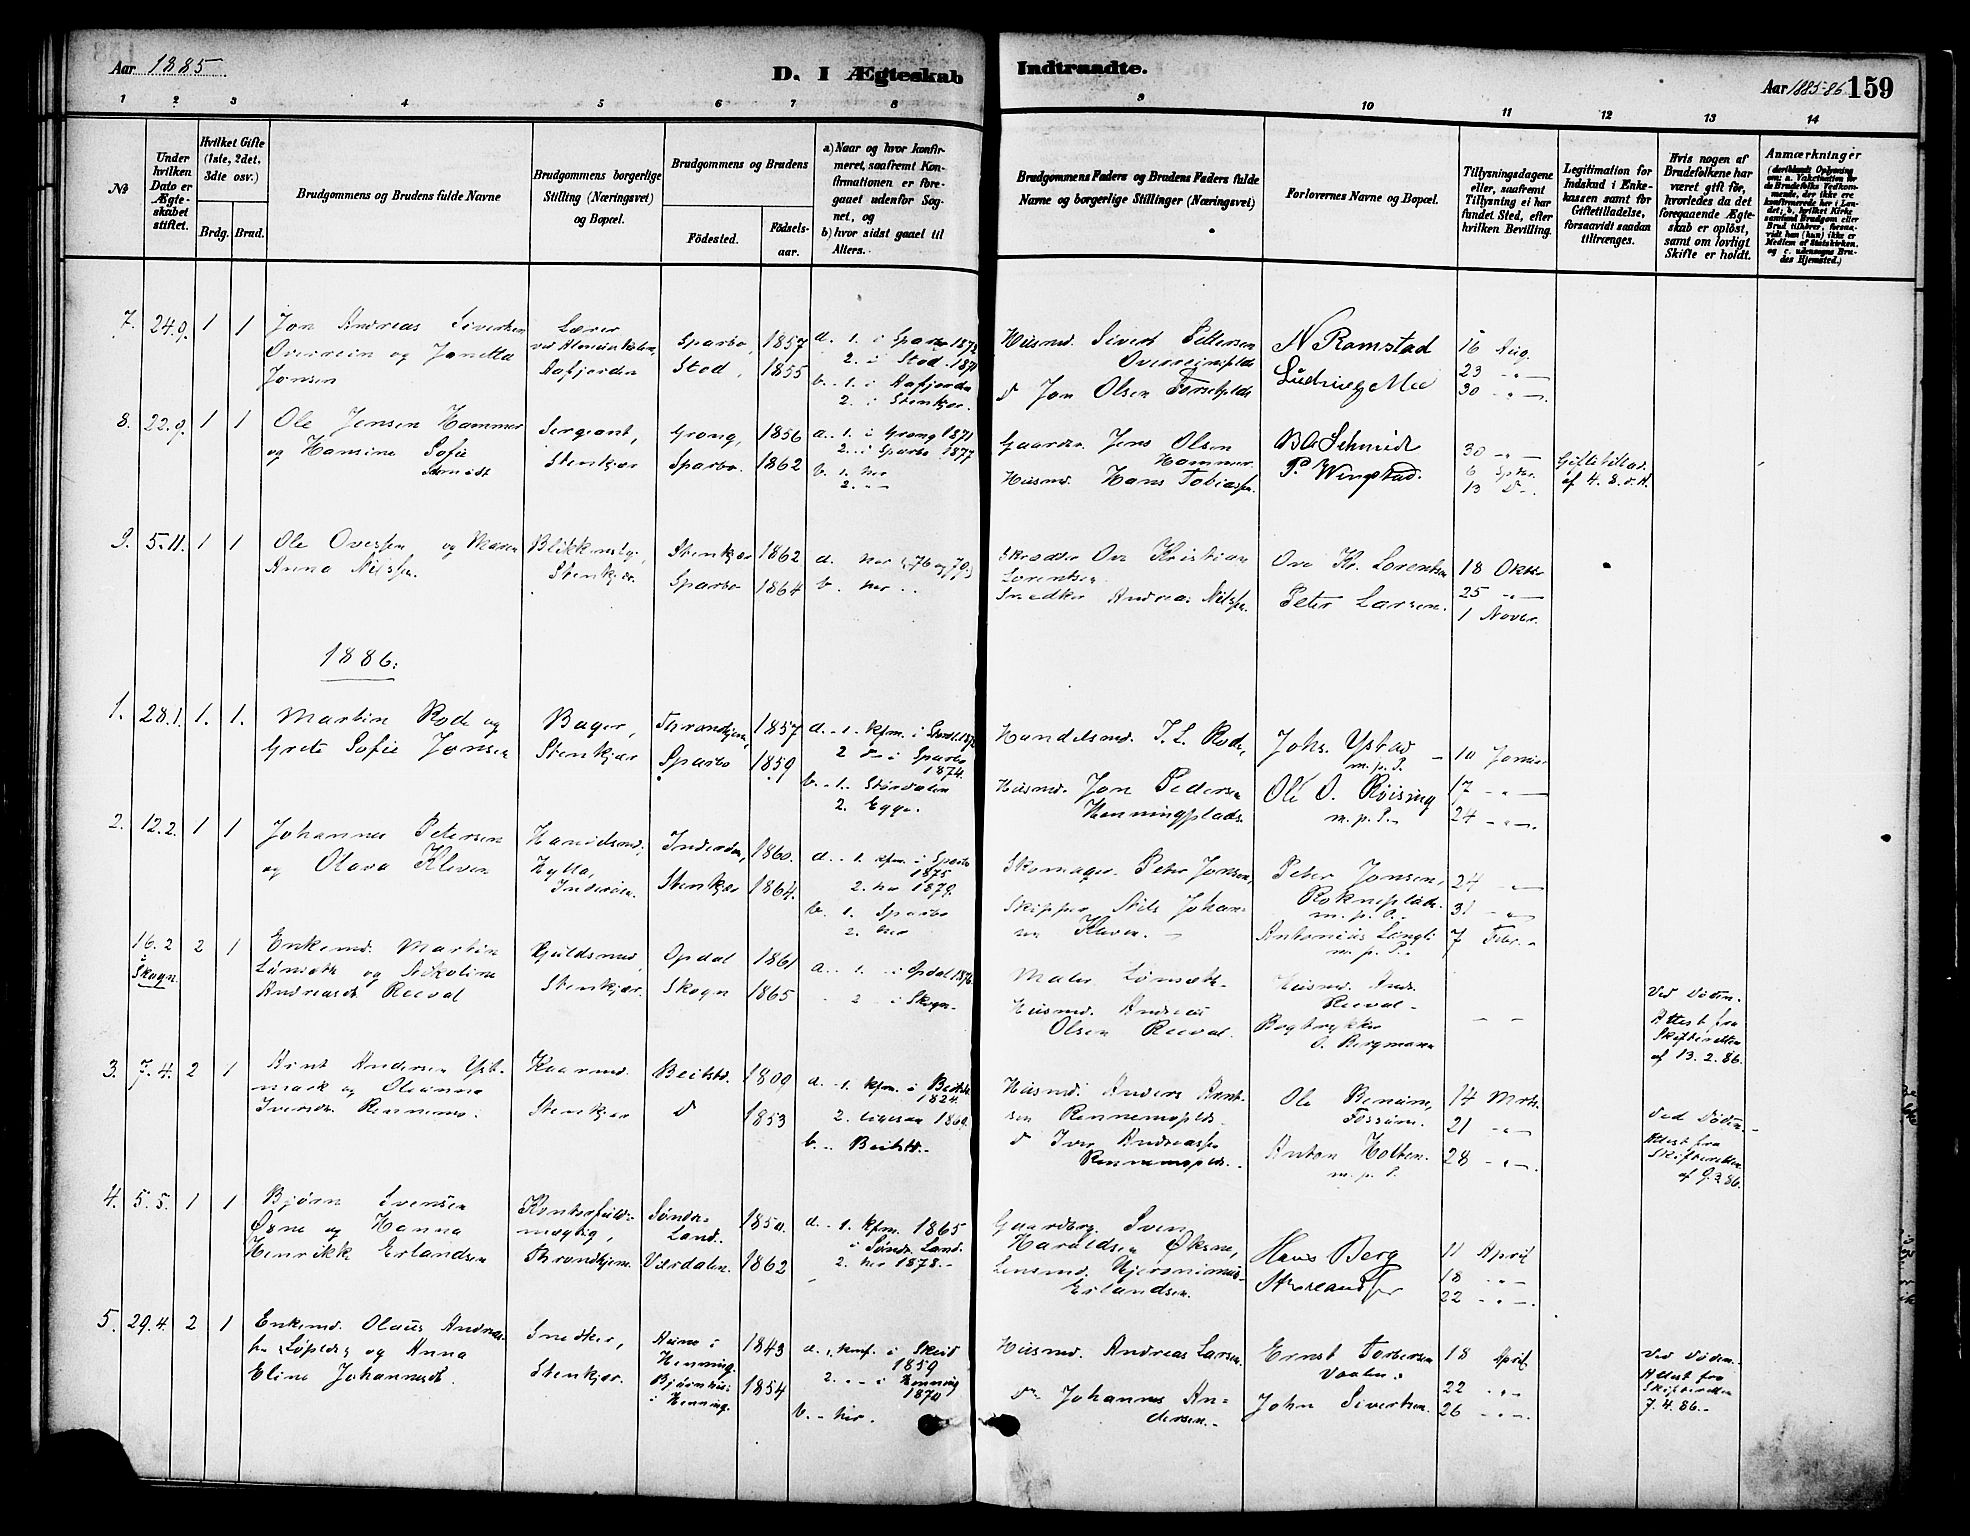 Aar 1885.
D. I Ægteskab Indtraadte.
Aar 1885-86 159
1 2 3 4 5 6 7 8 9 10 11 12 13 14
No
Under hvilken Dato er Ægteskabet stiftet.
Hvilket Gifte (1ste, 2det, 3die osv.)
Brdg. Brud.
Brudgommens og Brudens fulde Navne
Brudgommens borgerlige Stilling (Næringsvei) og Bopæl.
Brudgommens og Brudens
Fødested.
Fødselsaar.
a) Naar og hvor konfirmeret, saafremt Konfirmationen er foregaaet udenfor Sognet, og
b) hvor sidst gaaet til Alters.
Brudgommens Faders og Brudens Faders fulde Navne og borgerlige Stillinger (Næringsvei)
Forlovernes Navne og Bopæl.
Tillysningsdagene eller, saafremt Tillysning ei har fundet Sted, efter hvilken Bevilling.
Legitimation for Indskud i Enkekassen samt for Giftetilladelse, forsaavidt saadan tiltrænges.
Hvis nogen af Brudefolkene har været gift før, hvorledes da det foregaaende Ægteskab er opløst, samt om lovligt Skifte er holdt.
Anmærkninger
7. 24.9. 1 1
Jon Andreas Sivertsen
Overrein og Janetta
Jonsen
Lærer
Aafjorden
Sparbo, 1857
Stod, 1855
a. 1. i Sparbo 1872
2. i Stod 1871
b. 1. i Aafjorden
2. i Stenkjær.
Husmd. Sivert Pettersen
Overreinsplds
d Jon Olsen
N Romstad
Ludvig Mee
16 Aug.
23 - " -
30 - " -
8. 22.9. 1 1
Ole Jensen Hammer
og Hansine Sofie
Schmidt
Sergeant,
Stenkjær
Grong, 1856
Sparbo. 1862
a. 1. i Grong 1871
2. i Sparbo 1877
b. 1. her
2. - " -
Gaardm. Jens Olsen
Hammer.
Husmd. Hans Tobiassen
B A Schmidt
P. Wingstad.
30 - " -
6 Sptbr.
13 d -
Giftetillad.
af 4. 8. d. A.
9. 5.11. 1 1
Ole Ovessen og Maren
Anna Nilssen.
Blikkensl.,
Stenkjær.
Stenkjær 1862
Sparbo 1864
a. her (76 og 79.)
b. her.
Skrædder Ove Kristian
Lorentsen
Snedker Andreas Nilssen
Ove Kr. Lorentsen
Peter Larsen.
18 Oktbr
25 - " -
1 Novbr.
1886.
1. 28.1. 1. 1.
Martin Rode og
Grete Sofie Jonsen
Bager,
Stenkjær
Throndhjem, 1857
Sparbo 1859
a. 1. kfm. i
2 d - i Sparbo
1874.
b. 1. Størdalen
2. Egge.
Handelsmd. I. L. Rode,
Husmd. Jon Pedersen
Henningplads.
Johs. Ystad
m. p. P.
Ole O. Røising
m. p. P.
10 Januar
17 - " -
24 - " -
2. 12.2. 1 1
Johannes Petersen
og Olava Kleven
Handelsmd.,
Hylla,
Inderøen.
Inderøen, 1860.
Stenkjær 1864.
a. 1. kfm. i Sparbo
1875
2. her 1879.
b. 1. Sparbo
2. her
Skomager Peter Jonsen,
Skipper Nils Johan-
Peter Jonsen,
m. p. P.
Antonius Langli
m. p. P.
24 - " -
31 - " -
7 Febr.
16.2 i Skogn. 2 1
Enkemd. Martin
Lønsæth og Nikoline
Andreasdt. Reeval
Guldsmed,
Stenkjær.
Opdal 1861
Skogn 1865
a. 1. - i Opdal 1876
2 - i Skogn.
Maler Lønsæth.
Husmd. Andreas
Olsen Reeval.
Husmd. Andr.
Reeval.
Bogtrykker
O. Bergmann
Ved Døden.
Attest fra
Skifteretten
af 13. 2. 86.
3. 7.4. 2 1
Arnt Andersen
og Oleanna
Iversdt. Rennemo.
Kaarmd.
Stenkjær
Beitstd. 1809
d 1853
a. 1. kfm. i Beitstd.
1824.
2. ligesaa 1869.
b. Beitstd.
Husmd. Anders Arnt-
sen Rennemsplds.
d Iver Andreassen
Rennemsplds.
Ole Benum,
Fossum.
Anton Holten.
m. p. P.
14 Mrts.
21 - " -
28 - " -
Ved Døden.
Attest fra
Skifteretten
af 9. 3. 86.
4. 5.5. 1 1
Bjørn Svensen
Øxne og Hanna
Henrikk Erlandsen
Kontorfuld-
mægtig,
Throndhjem.
Søndre
Land. 1850.
Værdalen. 1862
a. 1. kfm. 1865
i Søndr. Land.
2. her 1878.
Gaardbrg. Sven
Haraldsen Øksne,
Lensmd. Hjeronimus
Erlandsen.
Hans Berg
11 April
18 - " -
22 - " -
5. 29.4. 2 1
Enkemd. Olaus Andreas-
sen og Anna
Eline Johannesdt.
Snedker,
Stenkjær.
i
Henning 1843
i Henning. 1854
a. 1. kfm. i Skeid
1859
2. - i Henning
1870
b. - her.
Husmd. Andreas Larsen.
d Johannes An-
dersen.
Ernst Torbersen
Vaalen.
John Sivertsen
18 April
22 - " -
26 - " -
Ved Døden.
Attest fra
Skifteretten
7. 4. 86.